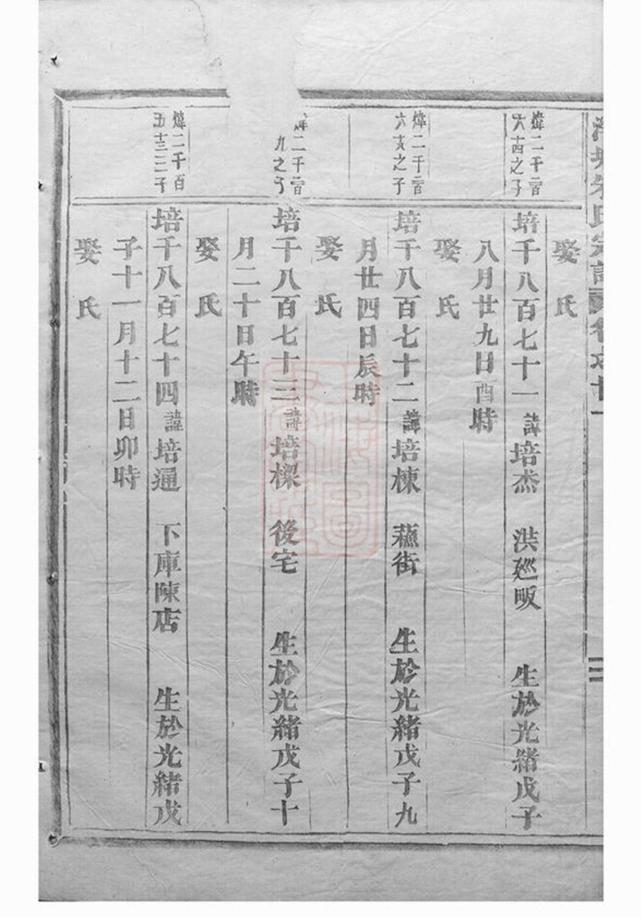 朱氏宗譜 卷之廿一
三
娶氏
煒二千一百
六十四之子
培千八百七十一 諱培杰 洪廵畈 生於光緒戊子
八月廿九日酉時
娶氏
煒二千一百
六十六之子
培千八百七十二 諱培棟 蘓街 生於光緒戊子九
月廿四日辰時
娶氏
二千一百
九之子
培千八百七十三 諱培樑 後宅 生於光緒戊子十
月二十日午時
娶氏
煒二千百
五十三子
培千八百七十四 諱培通 下庫陳店 生於光緒戊
子十一月十二日卯時
娶氏